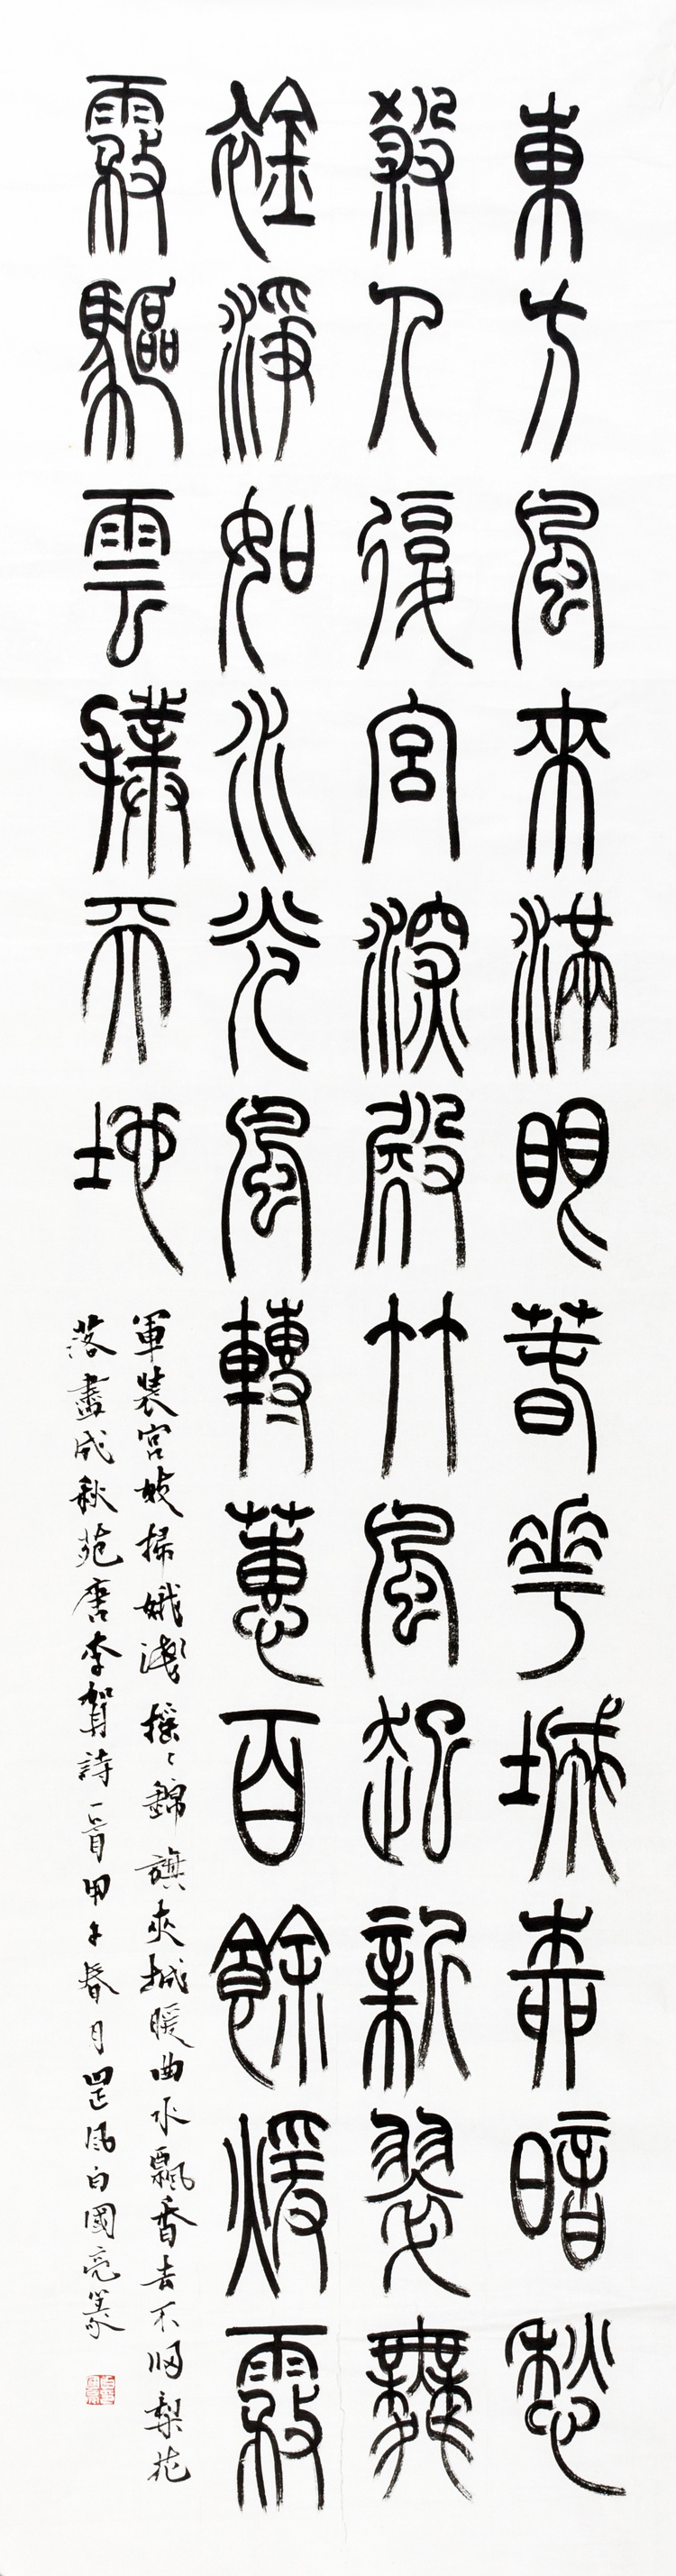 東方風來滿眼萅華城桺暗愁
殺人復宮深殿竹風起新翠舞
衿淨如水光風轉蕙百餘煖霧
霧驅雲撲天地
軍裝宮妓掃娥淺搖〻錦旗夾城暖曲水飄香去不歸梨花
落盡成秋苑唐李賀詩一首甲午春月罡風白國亮篆